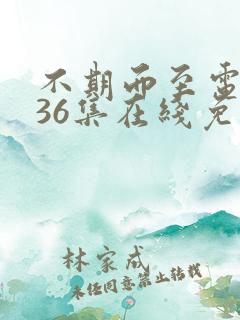 不期而至電
36集在线免
林家成
未经同意禁止转载